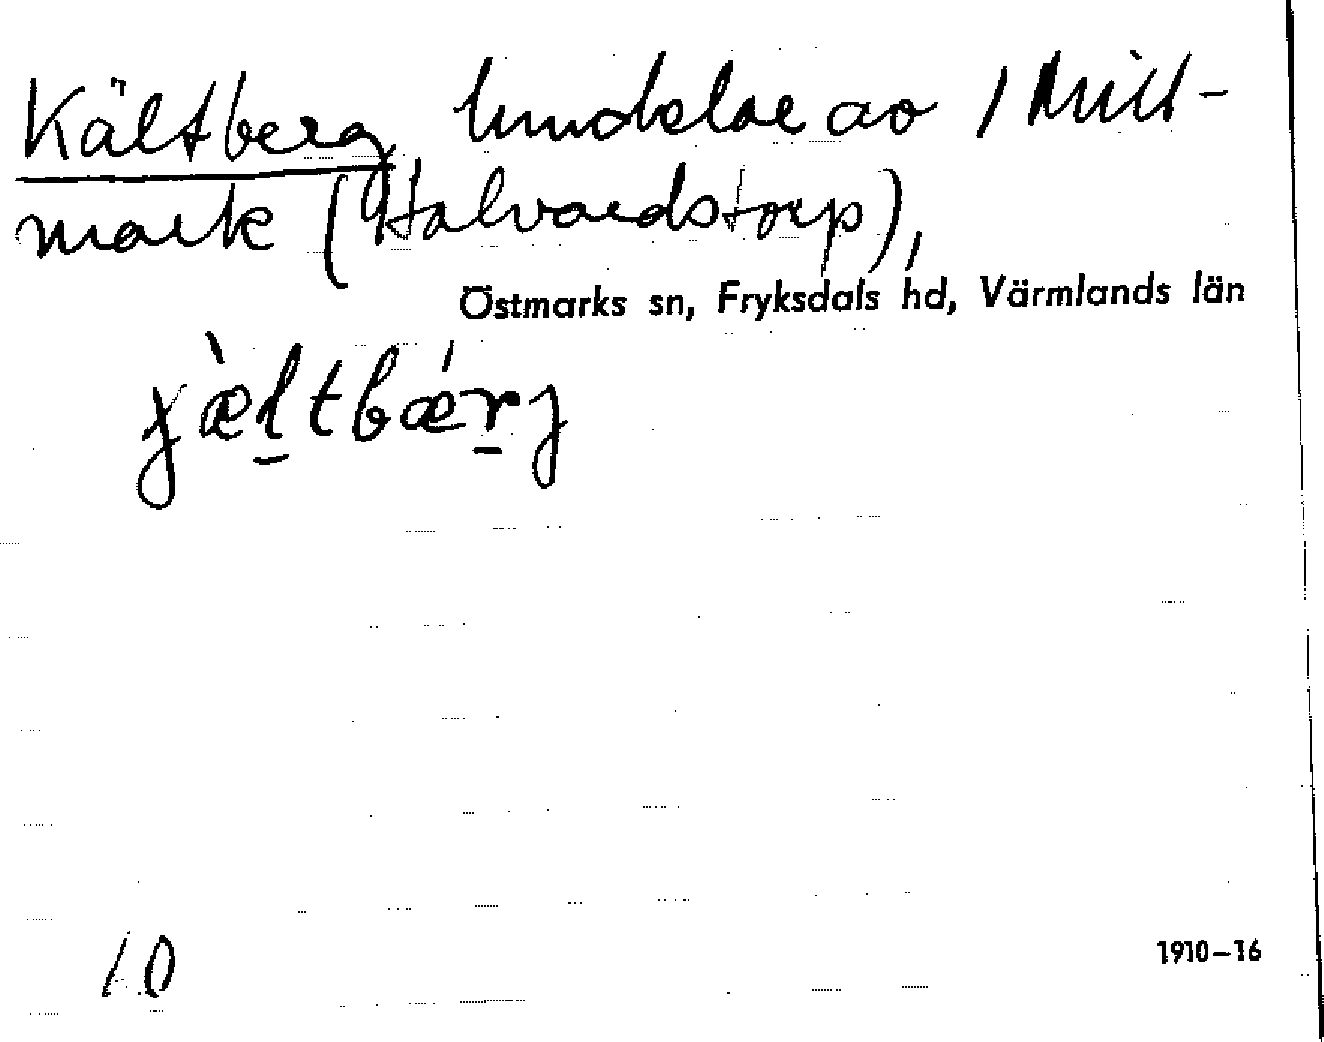 Kältberg, hmdelar av 1 Mitt-
mark (Halvardstorp),
Östmarks sn, Fryksdals hd, Värmlands län
10
1910–16